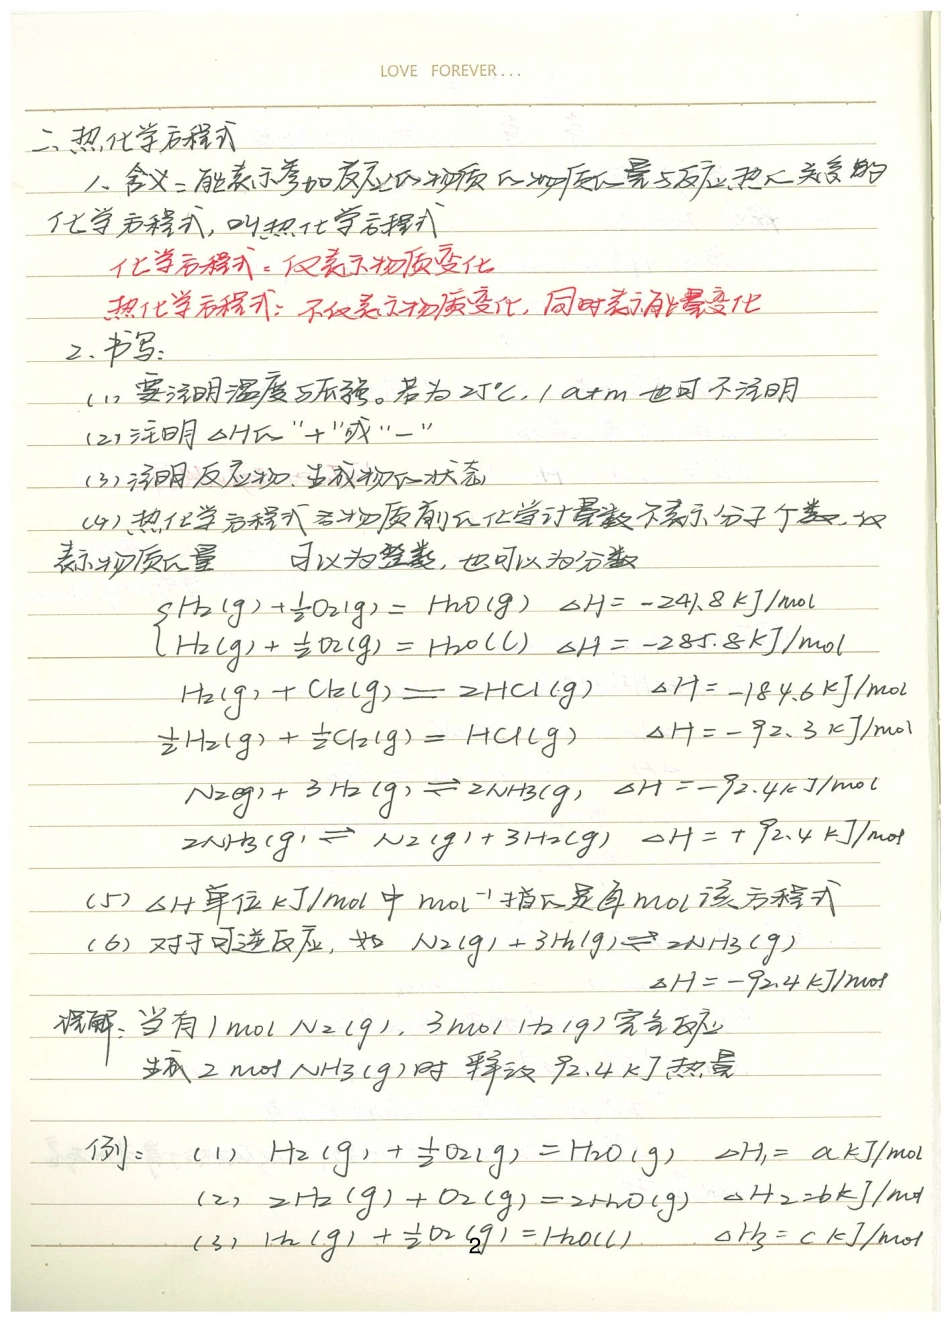 LOVE FOREVER...
二、热化学方程式
1、含义:能表示参加反应的物质的物质的量与反应热的关系的
化学方程式,叫热化学方程式
化学方程式:仅表示物质变化
热化学方程式:不仅表示物质变化,同时表示能量变化
2、书写:
(1)要注明温度与压强。若为25℃,1atm也可不注明
(2)注明△H的“+”或“-”
(3)注明反应物、生成物的状态
(4)热化学方程式各物质前的化学计量数不表示分子个数,仅
表示物质的量 可以为整数,也可以为分数
{H2(g)+½O2(g)=H2O(g) △H=-241.8kJ/mol
H2(g)+½O2(g)=H2O(l) △H=-285.8kJ/mol
H2(g)+Cl2(g)=2HCl(g) △H=-184.6kJ/mol
½H2(g)+½Cl2(g)=HCl(g) △H=-92.3kJ/mol
N2(g)+3H2(g)⇌2NH3(g) △H=-92.4kJ/mol
2NH3(g)⇌N2(g)+3H2(g) △H=+92.4kJ/mol
(5)△H单位kJ/mol中mol⁻¹指的是每mol该方程式
(6)对于可逆反应,如 N2(g)+3H2(g)⇌2NH3(g)
△H=-92.4kJ/mol
误解:当有1molN2(g)、3molH2(g)完全反应
生成2molNH3(g)时释放92.4kJ热量
例:(1)H2(g)+½O2(g)=H2O(g) △H1=akJ/mol
(2)2H2(g)+O2(g)=2H2O(g) △H2=bkJ/mol
(3)H2(g)+½O2(g)=H2O(l) △H3=ckJ/mol
2